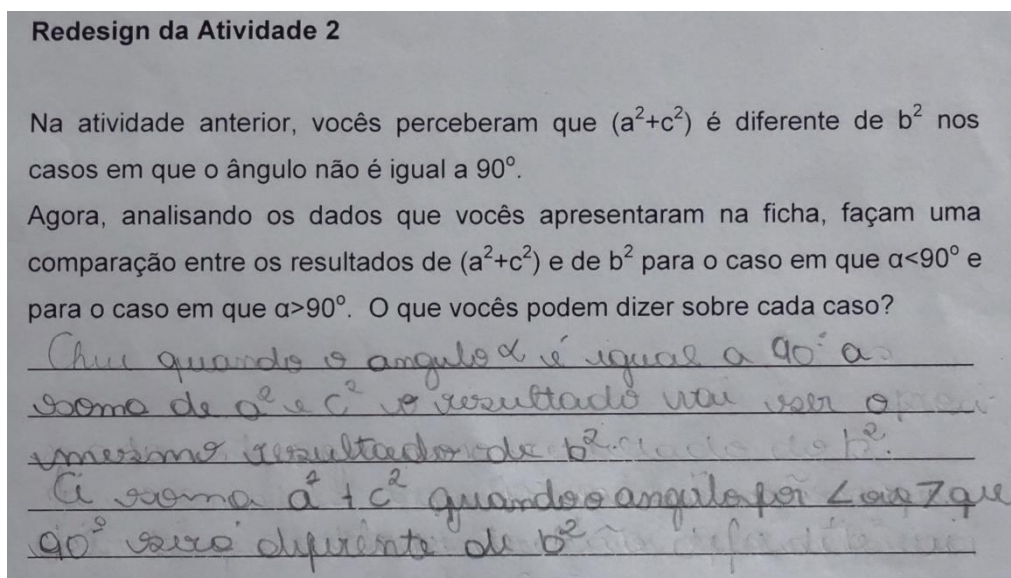 Redesign da Atividade 2
Na atividade anterior, vocês perceberam que (a²+c²) é diferente de b² nos
casos em que o ângulo não é igual a 90º.
Agora, analisando os dados que vocês apresentaram na ficha, façam uma
comparação entre os resultados de (a²+c²) e de b² para o caso em que α<90º e
para o caso em que α>90º. O que vocês podem dizer sobre cada caso?
quando o angulo α é igual a 90º a
soma de a² e c² o resultado vai ser o
mesmo resultado de b².
A soma a² + c² quando o angulo for < ou > que
90º sera diferente de b²